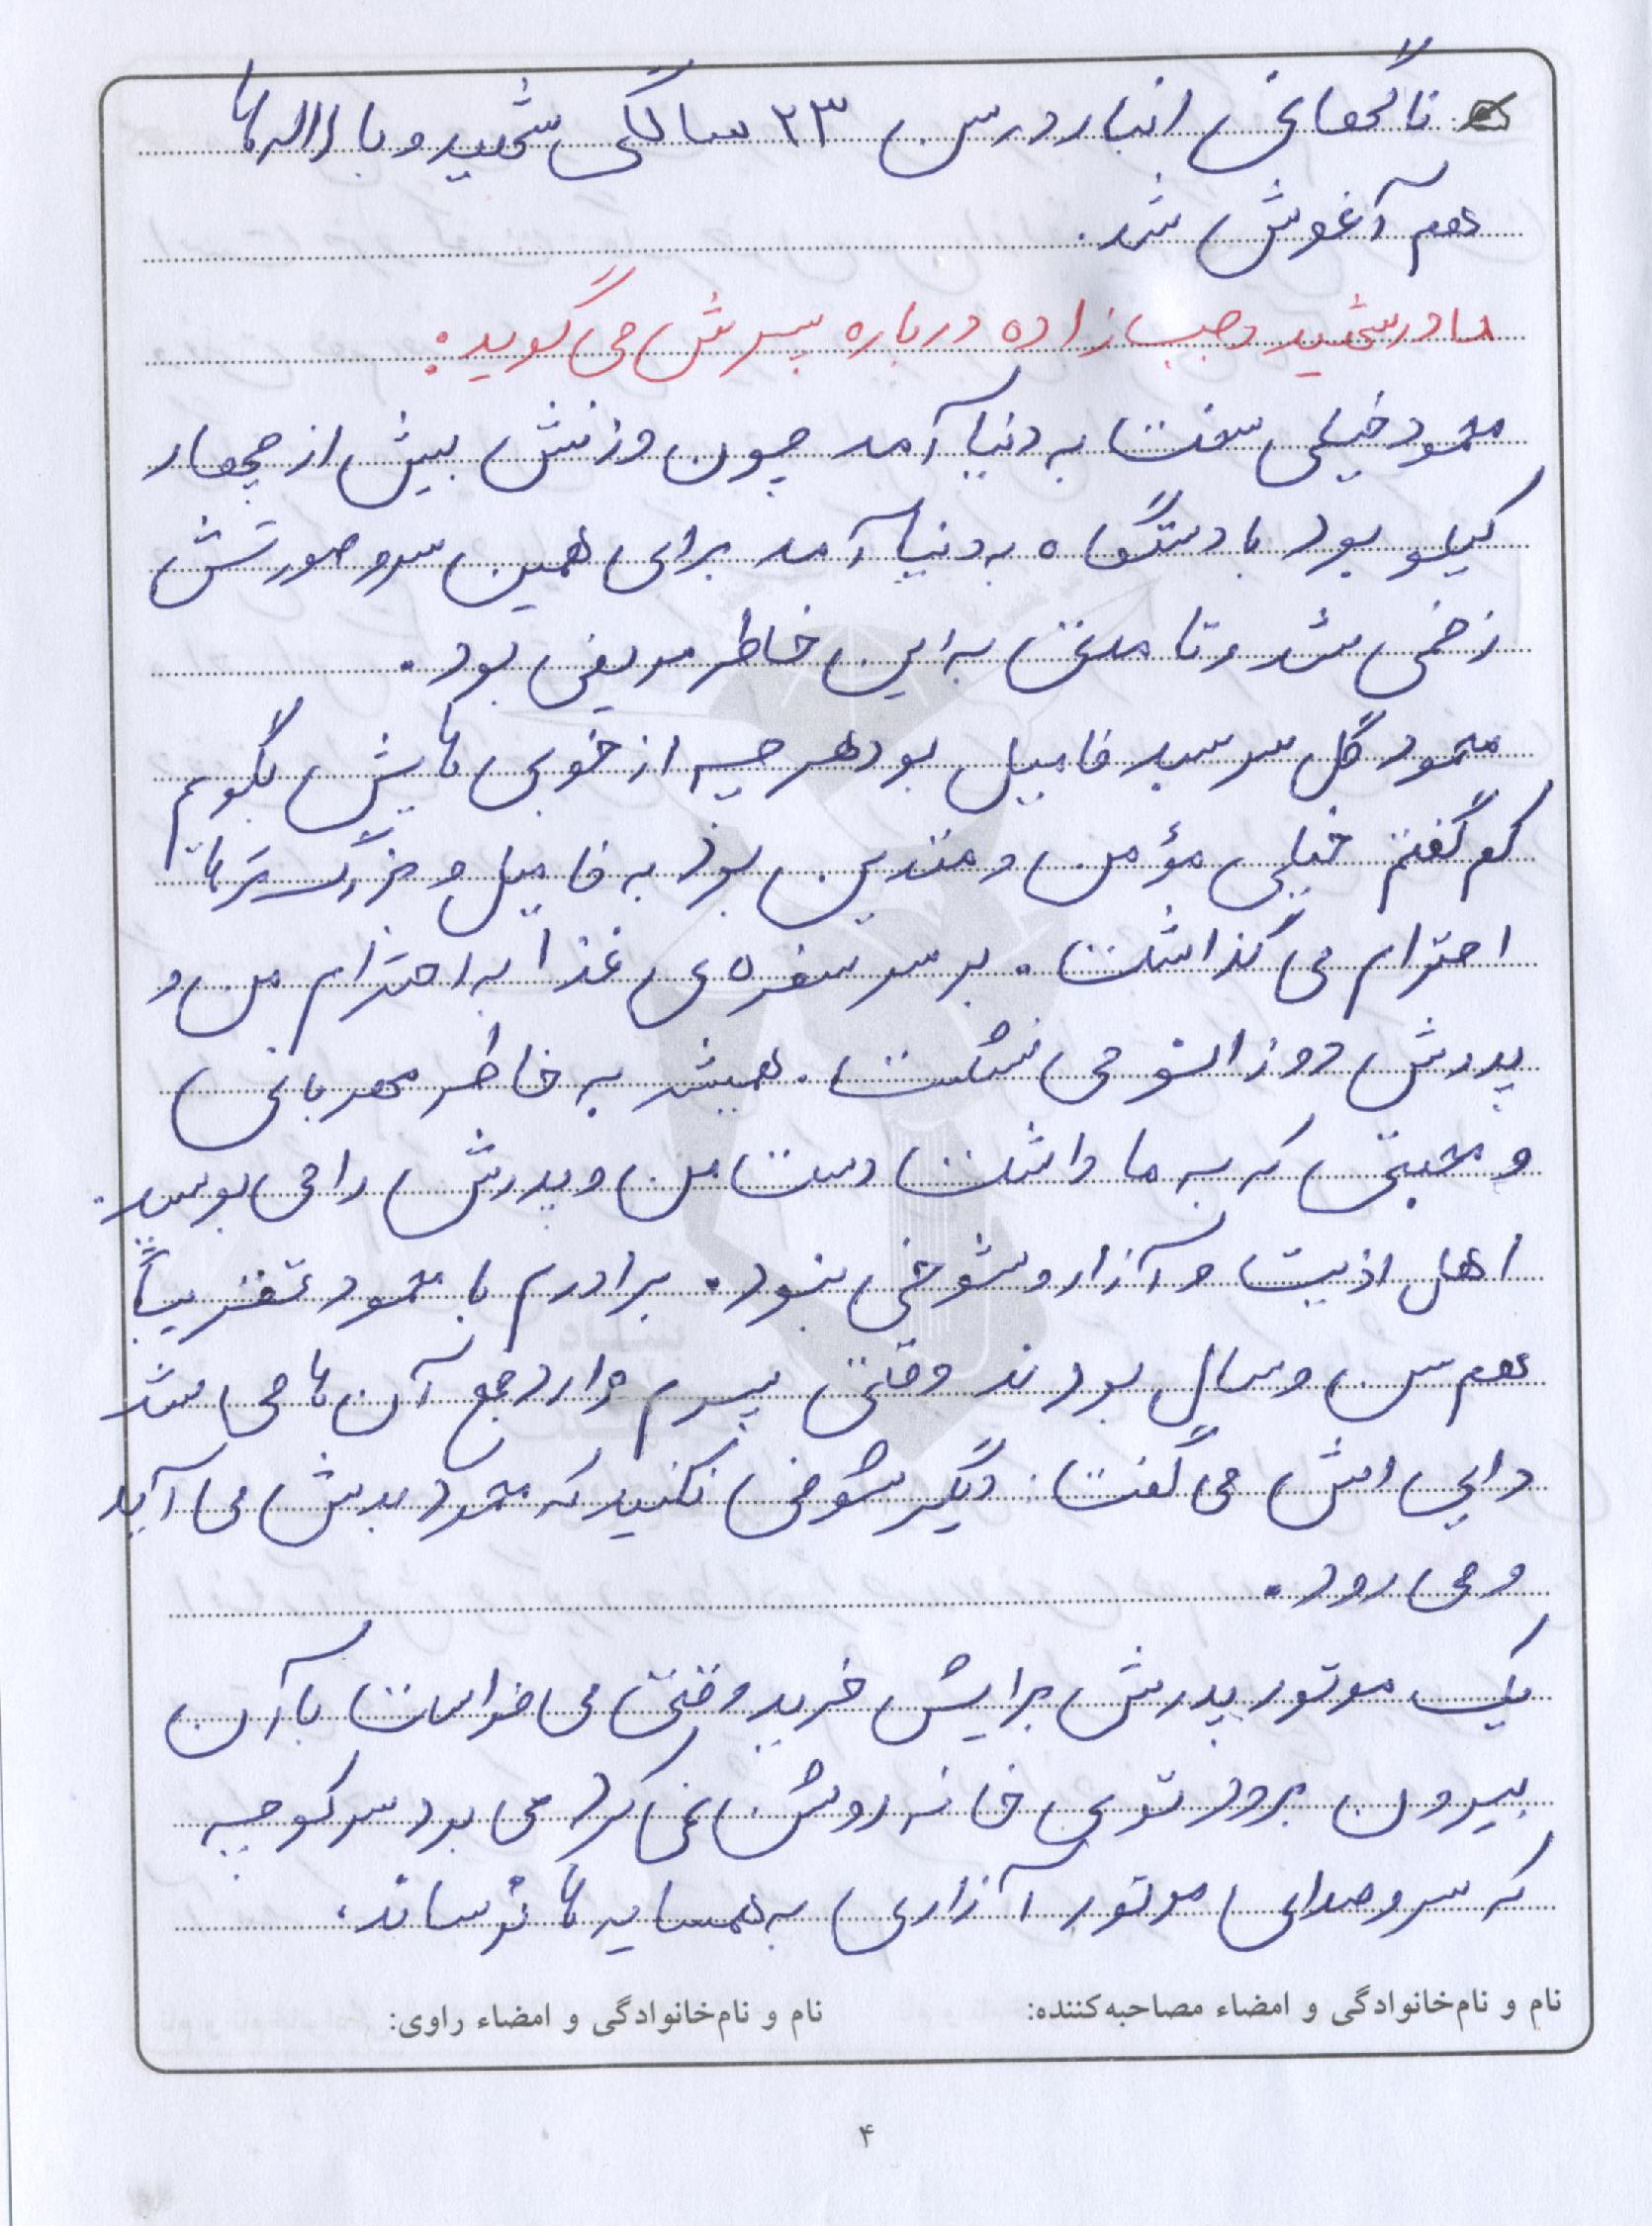 ناگهانی انبار در سن ۲۳ سالگی شهید و با لاله ها
هم آغوش شد.
مادر شهید رجب زاده درباره پسرش می گوید:
محمود خیلی سخت به دنیا آمد چون وزنش بیش از چهار
کیلو بود با دستگاه به دنیا آمد برای همین سر و صورتش
زخمی شد و تا مدتی به این خاطر مریض بود.
محمود گل سرسبد فامیل بود هر چه از خوبی هایش بگویم
کم گفتم خیلی مؤمن و متدین بود به فامیل و بزرگترها
احترام می گذاشت. بر سر سفره ی غذا به احترام من و
پدرش دو زانو می نشست. همیشه به خاطر مهربانی
و محبتی که به ما داشت دست من و پدرش را می بوسید.
اهل اذیت و آزار و شوخی نبود. برادرم با محمود تقریباً
هم سن و سال بودند وقتی پسرم وارد جمع آن ها می شد
دایی اش می گفت: دیگر شوخی نکنید که محمود بدش می آید
و می رود.
یک موتور پدرش برایش خرید وقتی می خواست با آن
بیرون برود توی خانه روشن نمی کرد می برد سر کوچه
که سر و صدای موتور آزاری به همسایه ها نرساند.
نام و نام‌خانوادگی و امضاء مصاحبه‌کننده: نام و نام‌خانوادگی و امضاء راوی:
۴